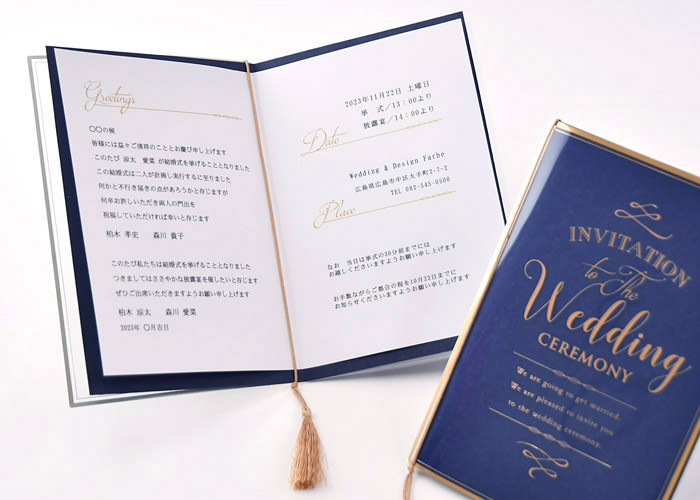 Greetings
〇〇の候
皆様には益々ご清祥のこととお慶び申し上げます
このたび 涼太 愛菜 が結婚式を挙げることとなりました
この結婚式は二人が計画し実行するに至りました
何かと不行き届きの点があろうかと存じますが
何卒お許しいただき両人の門出を
祝福していただければ幸いと存じます
柏木 孝史 森川 貴子
このたび私たちは結婚式を挙げることとなりました
つきましてはささやかな披露宴を催したいと存じます
ぜひご出席いただきますようお願い申し上げます
柏木 涼太 森川 愛菜
2023年 〇月吉日
2023年11月22日 土曜日
挙 式／13：00より
披露宴／14：00より
Date
Wedding & Design Farbe
広島県広島市中区大手町2-7-2
TEL 082-545-0500
Place
なお 当日は挙式の30分前までには
お越しくださいますようお願い申し上げます
お手数ながらご都合の程を10月22日までに
お知らせくださいますようお願い申し上げます
INVITATION
to The
Wedding
CEREMONY
We are going to get married.
We are pleased to invite you
to the wedding ceremony.